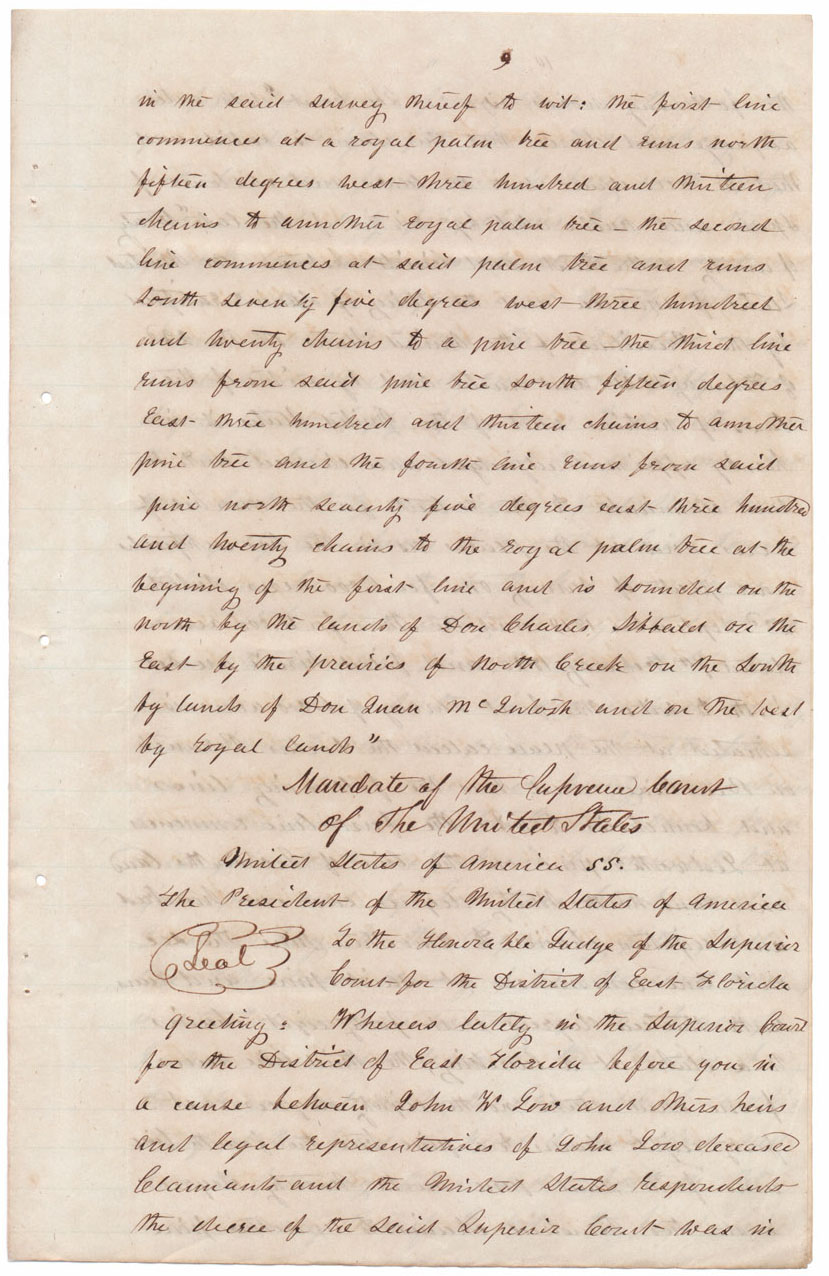 9
in the said survey thereof to wit: the first line
commences at a royal palm tree and runs north
fifteen degrees west three hundred and thirteen
chains to annother royal palm tree – the second
line commences at said palm tree and runs
South seventy five degrees west three hundred
and twenty chains to a pine tree – the third line
runs from said pine tree south fifteen degrees
East three hundred and thirteen chains to annother
pine tree and the fourth line runs from said
pine north seventy five degrees east three hundred
and twenty chains to the royal palm tree at the
begining of the first line and is bounded on the
north by the lands of Don Charles Sibbald on the
East by the prairies of North Creek on the South
by lands of Don Juan McIntosh and on the West
by royal lands"
Mandate of the Supreme Court
of The United States
United States of America SS.
The President of the United States of America
Seal
To the Honorable Judge of the Superior
Court for the District of East Florida
greeting: Whereas lately in the Superior Court
for the District of East Florida before you in
a cause between John W Low and others heirs
and legal representatives of John Low deceased
Claimants and the United States respondents
the decree of the said Superior Court was in